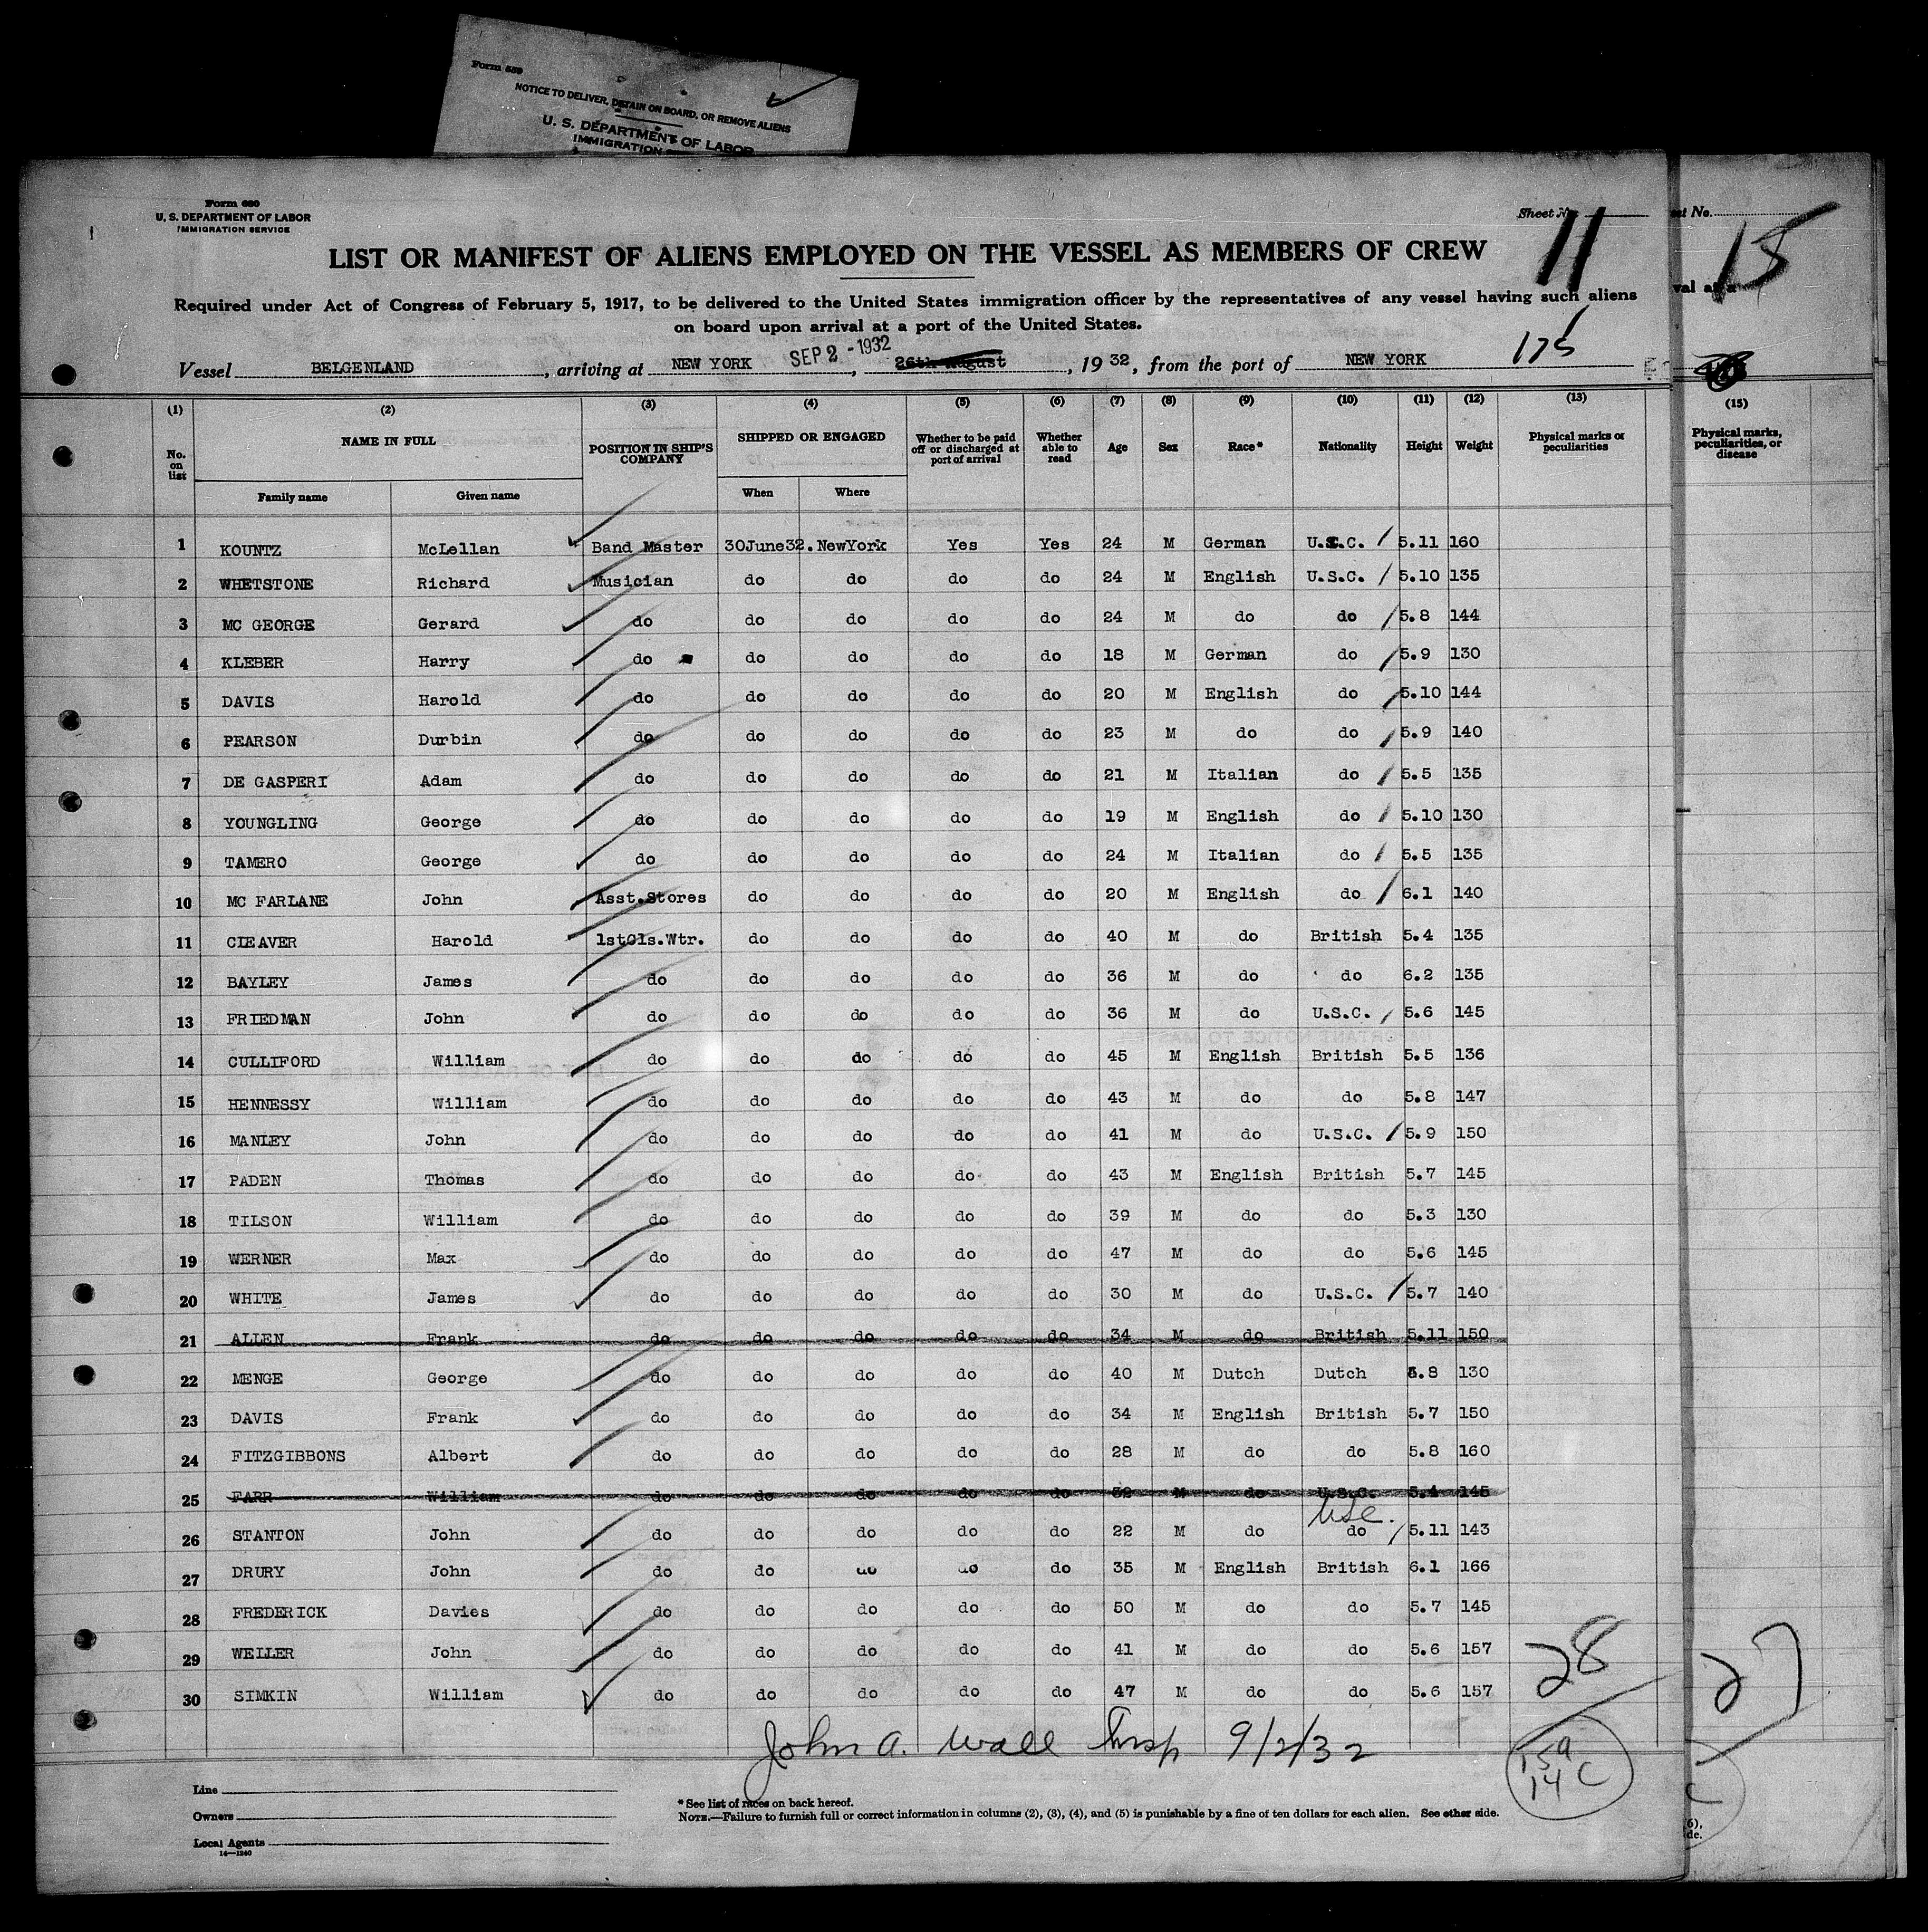 Form 689
NOTICE TO DELIVER, DETAIN ON BOARD, OR REMOVE ALIENS
U. S. DEPARTMENT OF LABOR
IMMIGRATION
Form 680
U. S. DEPARTMENT OF LABOR
IMMIGRATION SERVICE
Sheet No. 11
LIST OR MANIFEST OF ALIENS EMPLOYED ON THE VESSEL AS MEMBERS OF CREW
Required under Act of Congress of February 5, 1917, to be delivered to the United States immigration officer by the representatives of any vessel having such aliens
on board upon arrival at a port of the United States.
175
Vessel BELGENLAND, arriving at NEW YORK SEP 2 - 1932, 26th August, 1932, from the port of NEW YORK
(1) (2) (3) (4) (5) (6) (7) (8) (9) (10) (11) (12) (13)
No. on list NAME IN FULL POSITION IN SHIP'S COMPANY SHIPPED OR ENGAGED Whether to be paid off or discharged at port of arrival Whether able to read Age Sex Race* Nationality Height Weight Physical marks or peculiarities
Family name Given name When Where
1 KOUNTZ McLellan Band Master 30June32. NewYork Yes Yes 24 M German U.S.C. 5.11 160
2 WHETSTONE Richard Musician do do do do 24 M English U.S.C. 5.10 135
3 MC GEORGE Gerard do do do do do 24 M do do 5.8 144
4 KLEBER Harry do do do do do 18 M German do 5.9 130
5 DAVIS Harold do do do do do 20 M English do 5.10 144
6 PEARSON Durbin do do do do do 23 M do do 5.9 140
7 DE GASPERI Adam do do do do do 21 M Italian do 5.5 135
8 YOUNGLING George do do do do do 19 M English do 5.10 130
9 TAMERO George do do do do do 24 M Italian do 5.5 135
10 MC FARLANE John Asst.Stores do do do do 20 M English do 6.1 140
11 CLEAVER Harold 1stCls.Wtr. do do do do 40 M do British 5.4 135
12 BAYLEY James do do do do do 36 M do do 6.2 135
13 FRIEDMAN John do do do do do 36 M do U.S.C. 5.6 145
14 CULLIFORD William do do do do do 45 M English British 5.5 136
15 HENNESSY William do do do do do 43 M do do 5.8 147
16 MANLEY John do do do do do 41 M do U.S.C. 5.9 150
17 PADEN Thomas do do do do do 43 M English British 5.7 145
18 TILSON William do do do do do 39 M do do 5.3 130
19 WERNER Max do do do do do 47 M do do 5.6 145
20 WHITE James do do do do do 30 M do U.S.C. 5.7 140
21 ALLEN Frank do do do do do 34 M do British 5.11 150
22 MENGE George do do do do do 40 M Dutch Dutch 5.8 130
23 DAVIS Frank do do do do do 34 M English British 5.7 150
24 FITZGIBBONS Albert do do do do do 28 M do do 5.8 160
25 FARR William do do do do do 32 M do U.S.C. 5.4 145
usc.
26 STANTON John do do do do do 22 M do do 5.11 143
27 DRURY John do do do do do 35 M English British 6.1 166
28 FREDERICK Davies do do do do do 50 M do do 5.7 145
29 WELLER John do do do do do 41 M do do 5.6 157
30 SIMKIN William do do do do do 47 M do do 5.6 157
28
John A. Wall Insp 9/2/32
14 C
Line
Owners
Local Agents
14—1240
* See list of races on back hereof.
NOTE.—Failure to furnish full or correct information in columns (2), (3), (4), and (5) is punishable by a fine of ten dollars for each alien. See other side.
No.
15
val
(15)
Physical marks, peculiarities, or disease
27
C
(6),
de.